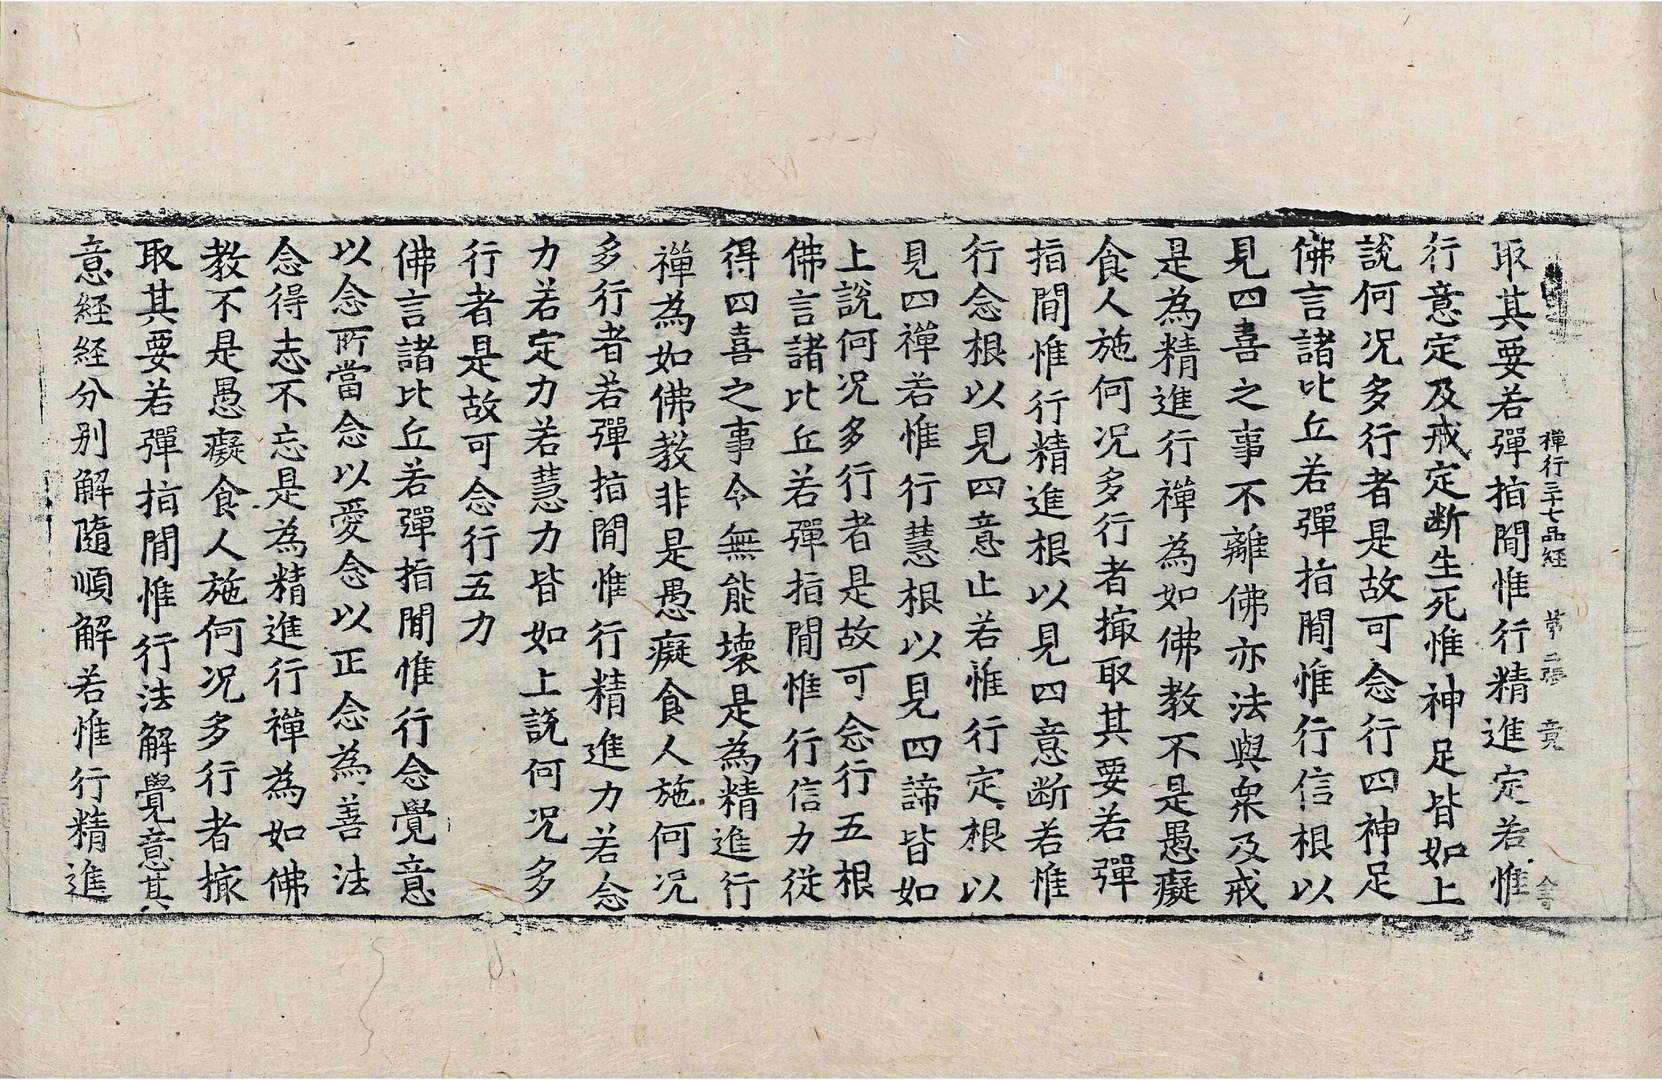 禪行三十七品經 第二張 竟
取其要若彈指間惟行精進定若惟
行意定及戒定断生死惟神足皆如上
說何況多行者是故可念行四神足
佛言諸比丘若彈指間惟行信根以
見四喜之事不離佛亦法與衆及戒
是為精進行禪為如佛教不是愚癡
食人施何況多行者撮取其要若彈
指間惟行精進根以見四意断若惟
行念根以見四意止若惟行定根以
見四禪若惟行慧根以見四諦皆如
上說何況多行者是故可念行五根
佛言諸比丘若彈指間惟行信力從
得四喜之事令無能壞是為精進行
禪為如佛教非是愚癡食人施何況
多行者若彈指間惟行精進力若念
力若定力若慧力皆如上說何況多
行者是故可念行五力
佛言諸比丘若彈指間惟行念覺意
以念所當念以愛念以正念為善法
念得志不忘是為精進行禪為如佛
教不是愚癡食人施何況多行者撮
取其要若彈指間惟行法解覺意其
意經經分別解隨順解若惟行精進